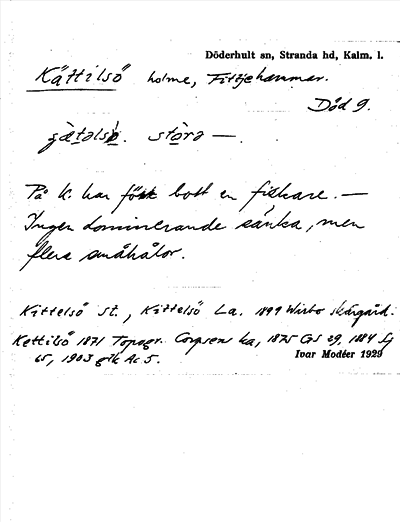 Döderhult sn, Stranda hd, Kalm. l.
Kättilsö holme, Fittjehammar.
Död 9.
gätəlsö. störa —.
På K. har bott en fiskare. —
Ingen dominerande sänka, men
flera småhålor.
Kättelsö St., Kättelsö La. 1899 Wirbo skärgård.
Kettilsö 1871 Topogr. Corpsens ka, 1875 GS 29, 1884 Lj
65, 1903 gtk Ac 5.
Ivar Modéer 1929